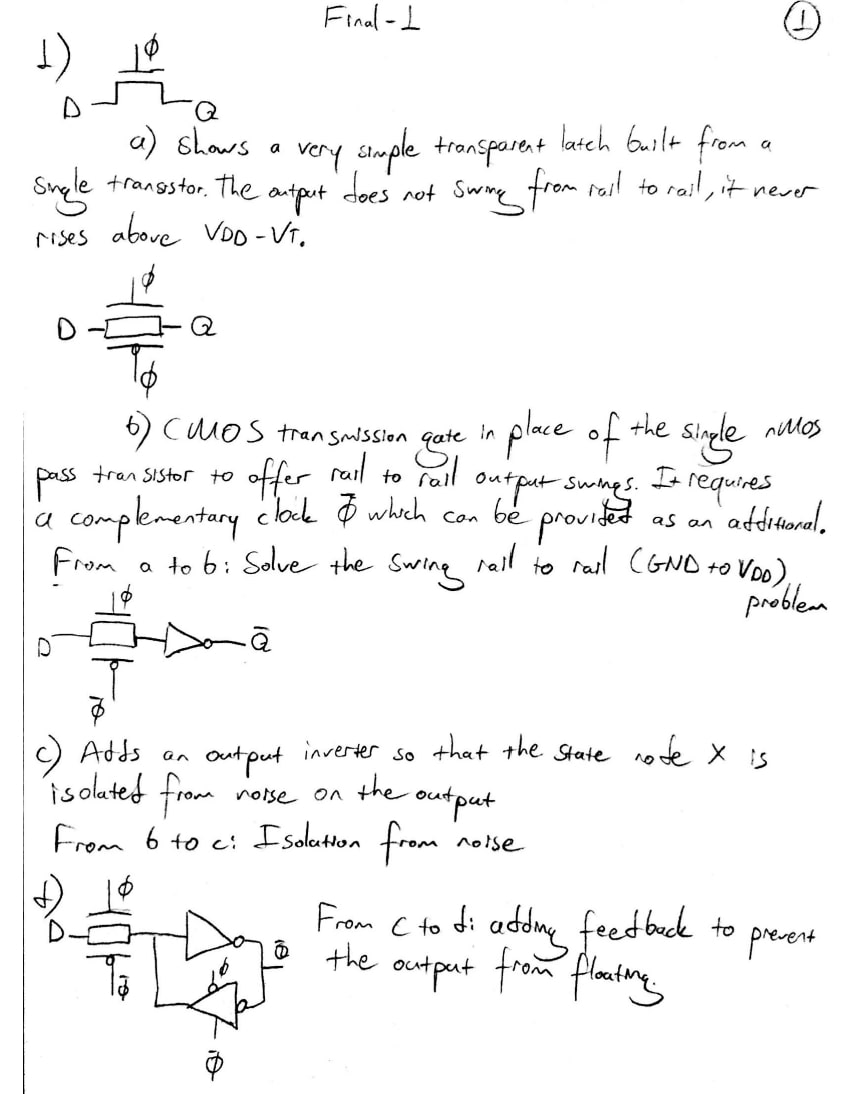 Final - 1
1
1)
ϕ
D
Q
a) Shows a very simple transparent latch built from a
single transistor. The output does not swing from rail to rail, it never
rises above VDD - VT.
ϕ
D
Q
ϕ
b) CMOS transmission gate in place of the single nMOS
pass transistor to offer rail to rail output swings. It requires
a complementary clock ϕ̅ which can be provided as an additional.
From a to b: Solve the swing rail to rail (GND to VDD)
problem
ϕ
D
Q̅
ϕ̅
c) Adds an output inverter so that the state node X is
isolated from noise on the output
From b to c: Isolation from noise
d)
ϕ
D
From c to d: adding feedback to prevent
Q̅
the output from floating.
ϕ
ϕ̅
ϕ̅